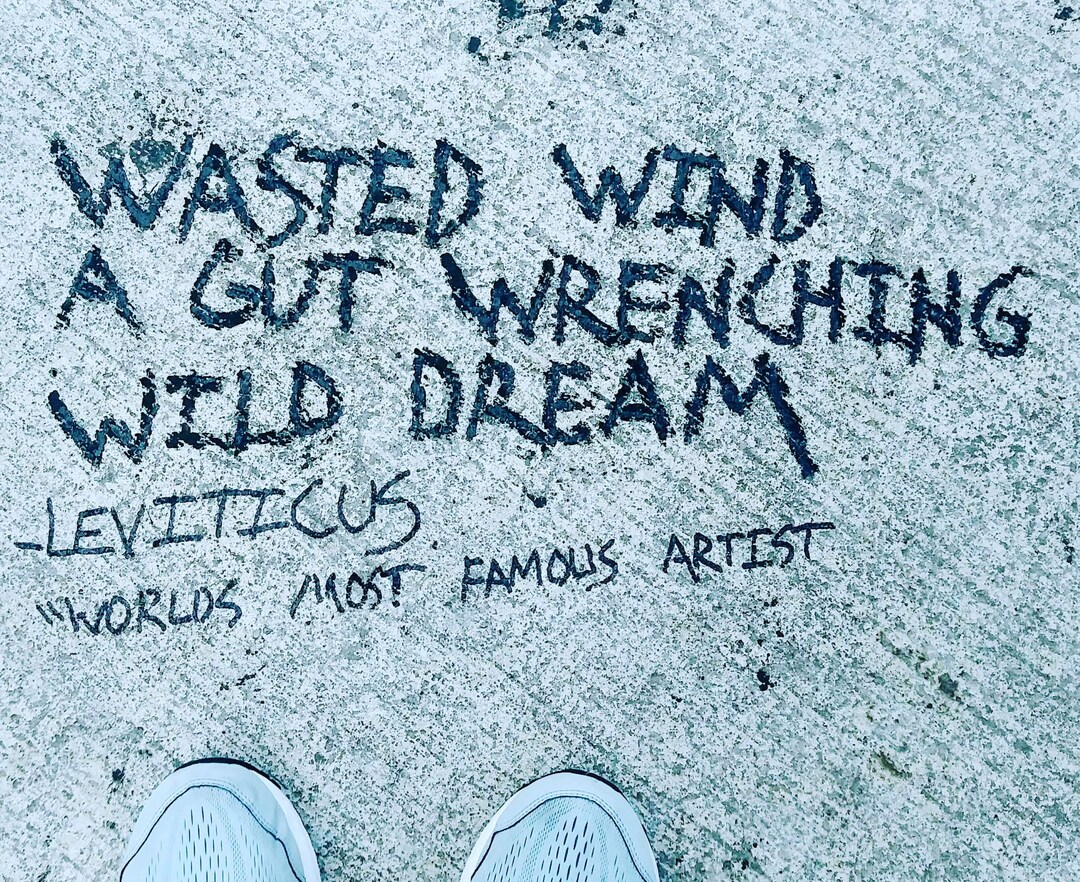 WASTED WIND
A GUT WRENCHING
WILD DREAM
-LEVITICUS.
"WORLDS MOST FAMOUS ARTIST